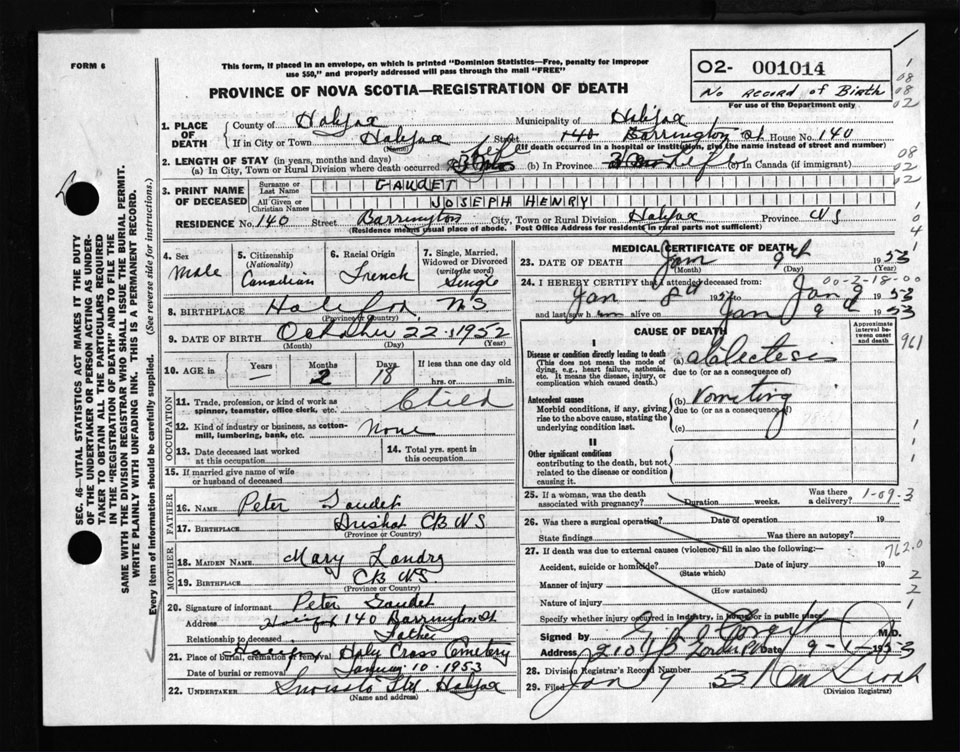 FORM 6
This form, if placed in an envelope, on which is printed "Dominion Statistics—Free, penalty for improper
use $50," and properly addressed will pass through the mail "FREE"
PROVINCE OF NOVA SCOTIA—REGISTRATION OF DEATH
02- 001014
No Record of Birth
For use of the Department only
1. PLACE OF DEATH
County of Halifax Municipality of Halifax
If in City or Town Halifax Street 140 Barrington St House No. 140
(Name) (If death occurred in a hospital or institution, give the name instead of street and number)
2. LENGTH OF STAY (in years, months and days)
(a) In City, Town or Rural Division where death occurred (b) In Province (c) In Canada (if immigrant)
3. PRINT NAME OF DECEASED
Surname or Last Name GAUDET
All Given or Christian Names JOSEPH HENRY
RESIDENCE No. 140 Street Barrington City, Town or Rural Division Halifax Province NS
(Residence means usual place of abode. Post Office Address for residents in rural parts not sufficient)
4. Sex Male
5. Citizenship (Nationality) Canadian
6. Racial Origin French
7. Single, Married, Widowed or Divorced (write the word) Single
8. BIRTHPLACE Halifax, NS
(Province or Country)
9. DATE OF BIRTH October 22 1952
(Month) (Day) (Year)
10. AGE in Years — Months 2 Days 18 If less than one day old
hrs. or min.
OCCUPATION
11. Trade, profession, or kind of work as spinner, teamster, office clerk, etc. Child
12. Kind of industry or business, as cotton-mill, lumbering, bank, etc. None
13. Date deceased last worked at this occupation
14. Total yrs. spent in this occupation
15. If married give name of wife or husband of deceased
FATHER
16. NAME Peter Gaudet
17. BIRTHPLACE Arichat CB NS
(Province or Country)
MOTHER
18. MAIDEN NAME Mary Landry
19. BIRTHPLACE CB NS
(Province or Country)
20. Signature of informant Peter Gaudet
Address Halifax 140 Barrington St
Relationship to deceased Father
21. Place of burial, cremation or removal Halifax Holy Cross Cemetery
Date of burial or removal January 10. 1953
22. UNDERTAKER Snow's Ltd. Halifax
(Name and address)
MEDICAL CERTIFICATE OF DEATH
23. DATE OF DEATH Jan 9th 1953
(Month) (Day) (Year)
24. I HEREBY CERTIFY that I attended deceased from: 00-2-18-00
Jan 8th 1953 to Jan 9 1953
and last saw him alive on Jan 9 1953
CAUSE OF DEATH
Approximate interval between onset and death
I
Disease or condition directly leading to death
(This does not mean the mode of dying, e.g., heart failure, asthenia, etc. It means the disease, injury, or complication which caused death.)
(a)
due to (or as a consequence of)
Antecedent causes
Morbid conditions, if any, giving rise to the above cause, stating the underlying condition last.
(b) Vomiting
due to (or as a consequence of)
(c)
II
Other significant conditions
contributing to the death, but not related to the disease or condition causing it.
25. If a woman, was the death associated with pregnancy? Duration weeks. Was there a delivery? 1-09-3
26. Was there a surgical operation? Date of operation 19
State findings Was there an autopsy?
27. If death was due to external causes (violence) fill in also the following:— 762.0
Accident, suicide or homicide? Date of injury 19
(State which)
Manner of injury
(How sustained)
Nature of injury
Specify whether injury occurred in industry, in home or in public place
Signed by M.D.
Address Date 9-1-1953
28. Division Registrar's Record Number
29. Filed Jan 9 1953
(Division Registrar)
SEC. 46—VITAL STATISTICS ACT MAKES IT THE DUTY
OF THE UNDERTAKER OR PERSON ACTING AS UNDER-
TAKER TO OBTAIN ALL THE PARTICULARS REQUIRED
IN THE "REGISTRATION OF DEATH" AND TO FILE THE
SAME WITH THE DIVISION REGISTRAR WHO SHALL ISSUE THE BURIAL PERMIT.
WRITE PLAINLY WITH UNFADING INK. THIS IS A PERMANENT RECORD.
Every item of information should be carefully supplied. (See reverse side for instructions.)
1
08
08
02
08
02
02
1
0
4
1
961
1
1
1
2
2
1